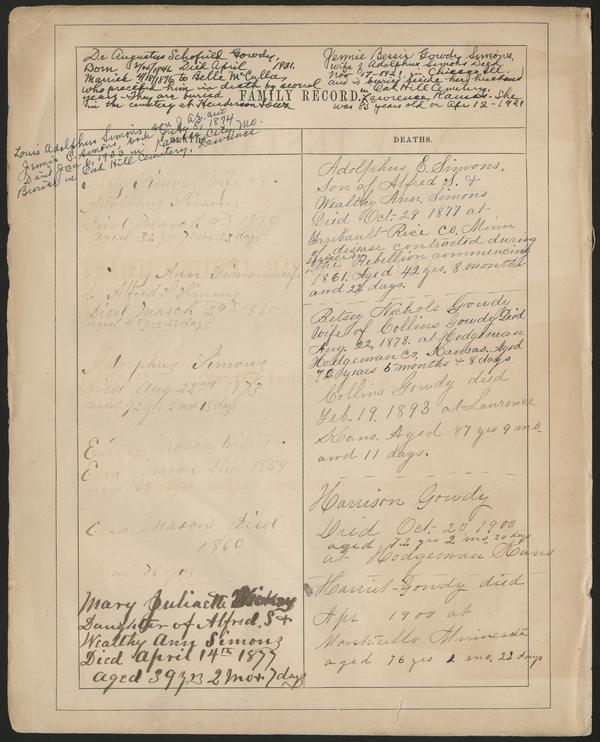 Dr Augustus Schofield Gowdy,
Born Died April 1931.
Married 4/18/1876 to Belle McCulla,
who preceded him in death by several
years - They are buried
in the cemetery at Henderson
Jennie Bessie Gowdy Simons,
wife of Adolphus Simons Died
Nov 17-1921 in Chicago Ill.
and is buried beside her husband
in Oak Hill Cemetery,
Lawrence Kansas - She
was 85 years old on Apr 12-1921
FAMILY RECORD.
Louis Adolphus Simons, son of
Jennie B. Simons, born July 8, 1874
Died Jan 6, 1933 in Kansas City, Mo.
Buried in Oak Hill Cemetery, Lawrence
DEATHS.
Simons wife of
Adolphus Simons
Died March 9th 1819
aged 32 yrs 7 mos 23 days
Ann Simons wife
Alfred S Simons
Died March 29th 1860
Adolphus Simons
Died Aug 22nd 1873
aged 72 yrs 5 mos 18 days
Mason wife of
Ezra Mason Died 1859
Ezra Mason Died
1860
76 yrs
Mary Juliaette Dickey
Daughter of Alfred, S &
Wealthy Ann Simons
Died April 14th 1877
aged 39 yrs 2 mos 7 days
DEATHS.
Adolphus E. Simons,
Son of Alfred S. &
Wealthy Ann Simons
Died Oct- 29 1877 at
Faribault- Rice Co, Minn
of disease contracted during
services in the Rebellion commencing
1861. Aged 42 yrs. 8 months
and 22 days.
Betsey Nichols Gowdy
Wife of Collins Gowdy Died
Aug. 22, 1878. at Hodgeman
Hodgeman Co, Kansas. Aged
72 years 5 months & 8 days
Collins Gowdy died
Feb. 19. 1893 at Lawrence
Kans. Aged 87 yrs 9 mo.
and 11 days.
Harrison Gowdy
Died Oct- 20 1900
aged 72 yrs 2 mo. 20 days
at Hodgeman Kans
Harriet- Gowdy died
Apr 1900 at
Monticello Minnesota
aged 76 yrs 2 mo. 22 days